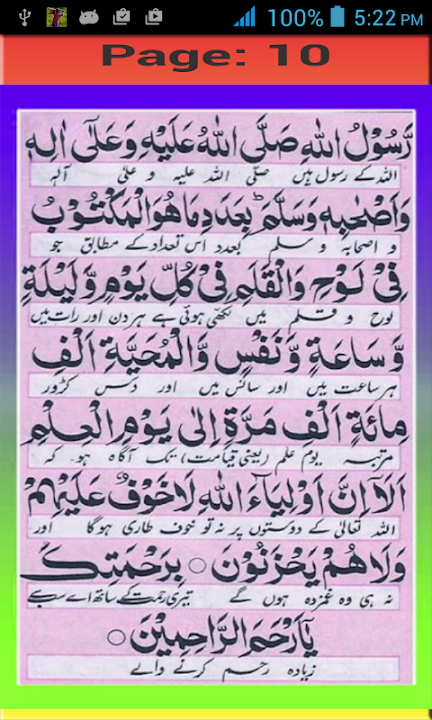 100% 5:22 PM
Page: 10
رَّسُوْلُ اللهِ صَلَّى اللهُ عَلَيْهِ وَعَلٰٓى اٰلِهٖ
اللہ کے رسول ہیں صلی اللہ علیہ و علیٰ آلہ
وَاَصْحٰبِهٖ وَسَلَّمَ ؕ بِعَدَدِ مَا هُوَ الْمَكْتُوْبُ
و اصحابہ و سلم بعدد اس تعداد کے مطابق جو
فِىْ لَوْحِ وَالْقَلَمِ فِىْ كُلِّ يَوْمٍ وَّلَيْلَةٍ
لوح و قلم میں لکھی ہوئی ہے ہر دن اور رات میں
وَّسَاعَةٍ وَّنَفْسٍ وَّالْمُحَيَّةِ اَلْفِ
ہر ساعت میں اور سانس میں اور دس کڑور
مِائَةِ اَلْفِ مَرَّةٍ اِلٰى يَوْمِ الْعِلْمِ
مرتبہ یوم علم (یعنی قیامت) تک آگاہ ہو کہ
اَلَآ اِنَّ اَوْلِيَآءَ اللهِ لَا خَوْفٌ عَلَيْهِمْ
اللہ تعالیٰ کے دوستوں پر نہ تو خوف طاری ہوگا اور
وَلَا هُمْ يَحْزَنُوْنَ ○ بِرَحْمَتِكَ
نہ ہی وہ غمزدہ ہوں گے تیری رحمت کے ساتھ اے سب سے
يَآ اَرْحَمَ الرَّاحِمِيْنَ ○
زیادہ رحم کرنے والے